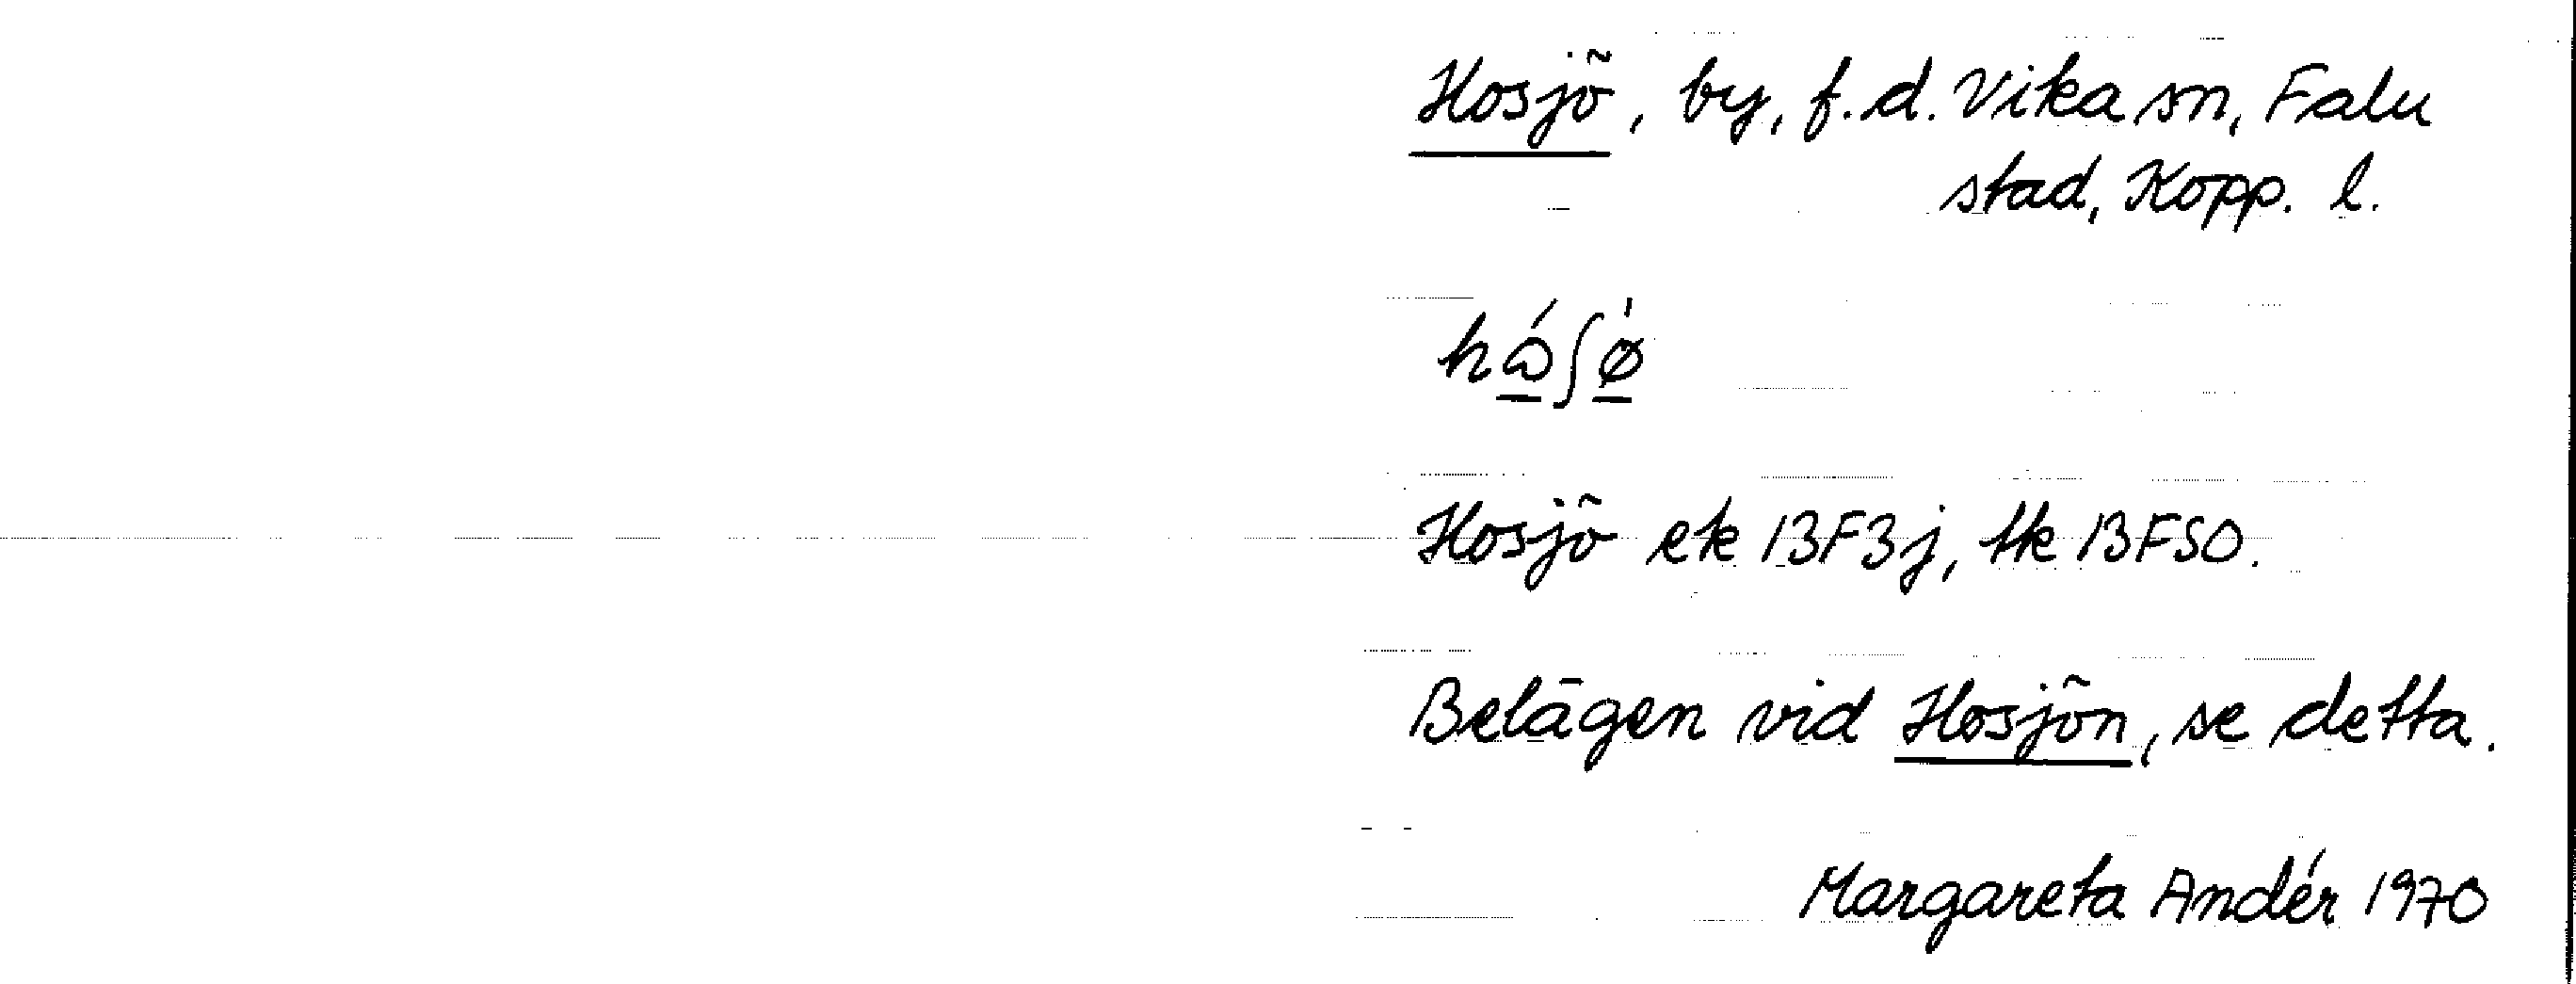 Hosjö, by, f.d. Vika sn, Falu
stad, Kopp. l.
Hosjö ek 13F3j, tk 13FSO.
Belägen vid Hosjön, se detta.
Margareta Andér 1970